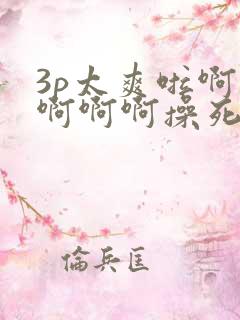 3p太爽啦啊
啊啊啊操死
倫兵匡